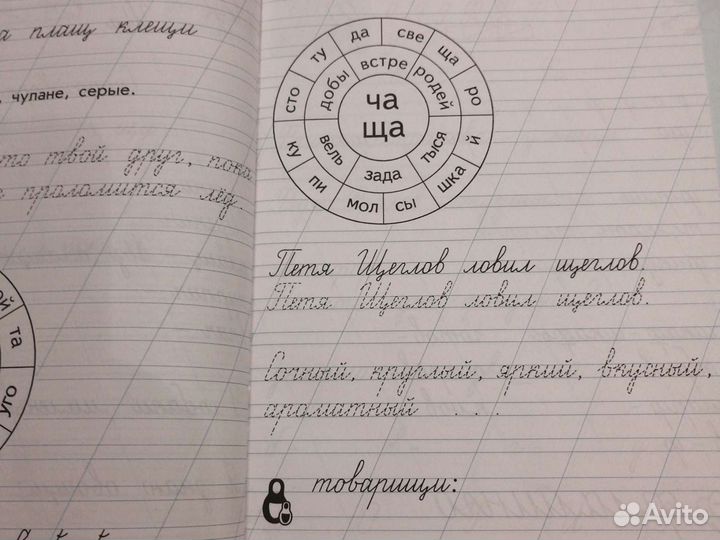 а плащ клещи
, чулане, серые.
то твой друг, пока
проломится лёд.
ой та
уго
да све ща ро й шка сы мол пи ку сто ту
встре родей тыся зада вель добы
ча
ща
Петя Щеглов ловил щеглов.
Петя Щеглов ловил щеглов.
Сочный, круглый, яркий, вкусный,
ароматный . . .
товарищи:
Avito